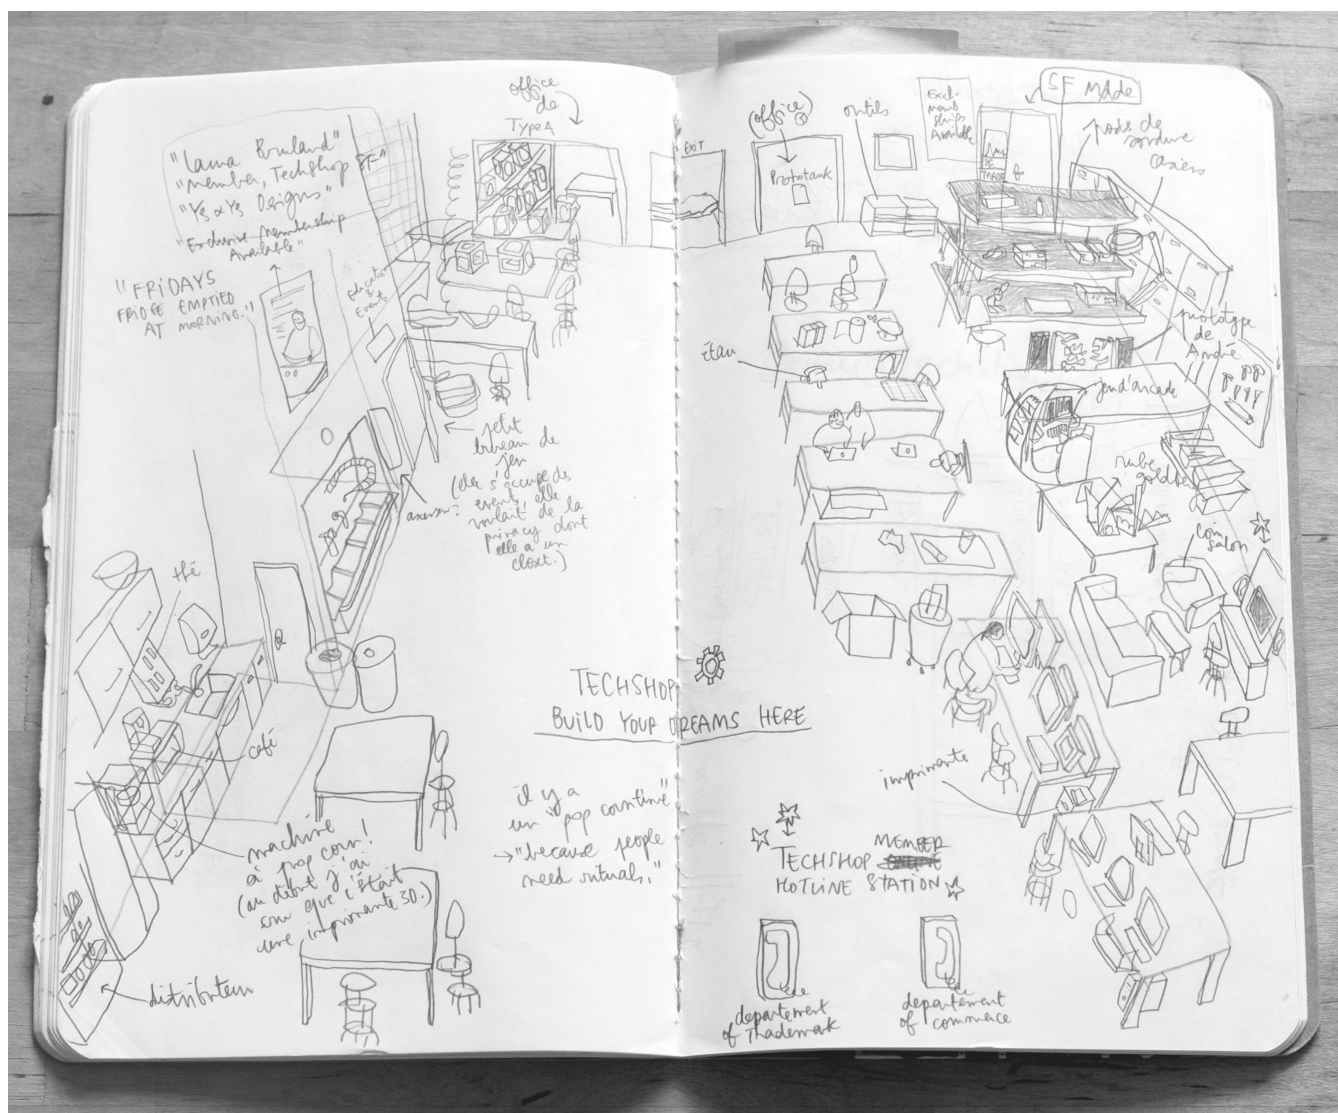 office
de
Type A
"Member, TechShop SF"
"Exclusive Membership
Available"
"FRIDAYS
FRIDGE EMPTIED
AT MORNING."
Education
&
Events
petit
bureau de
jen
(elle s'occupe des
event, elle
voulait de la
privacy dont
elle a un
closet.)
ascenseur?
thé
café
machine
à pop corn!
(au début j'ai
cru que c'était
une imprimante 3D.)
distributeur
TECHSHOP
BUILD YOUR DREAMS HERE
il y a
un "pop corn time"
→ "because people
need rituals."
EXIT
(office)
Prototank
outils
Excl.
memb
ships
Available
SF MADE
SF
MADE
casiers
étau
prototype
de
André
jeu d'arcade
rube
goldberg
coin
salon
imprimante
TECHSHOP MEMBER
HOTLINE STATION
departement
of Trademark
departement
of commerce